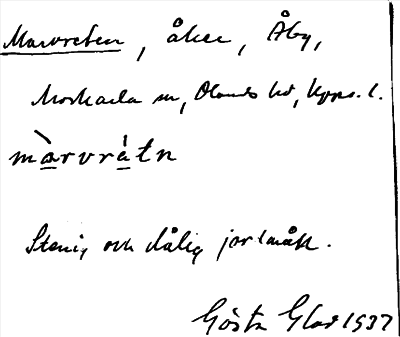 Marvreten, åker, Åby,
Morkarla sn, Olands hd, Upps. l.
màrvrátn
Stenig och dålig jordmån.
Gösta Glad 1937